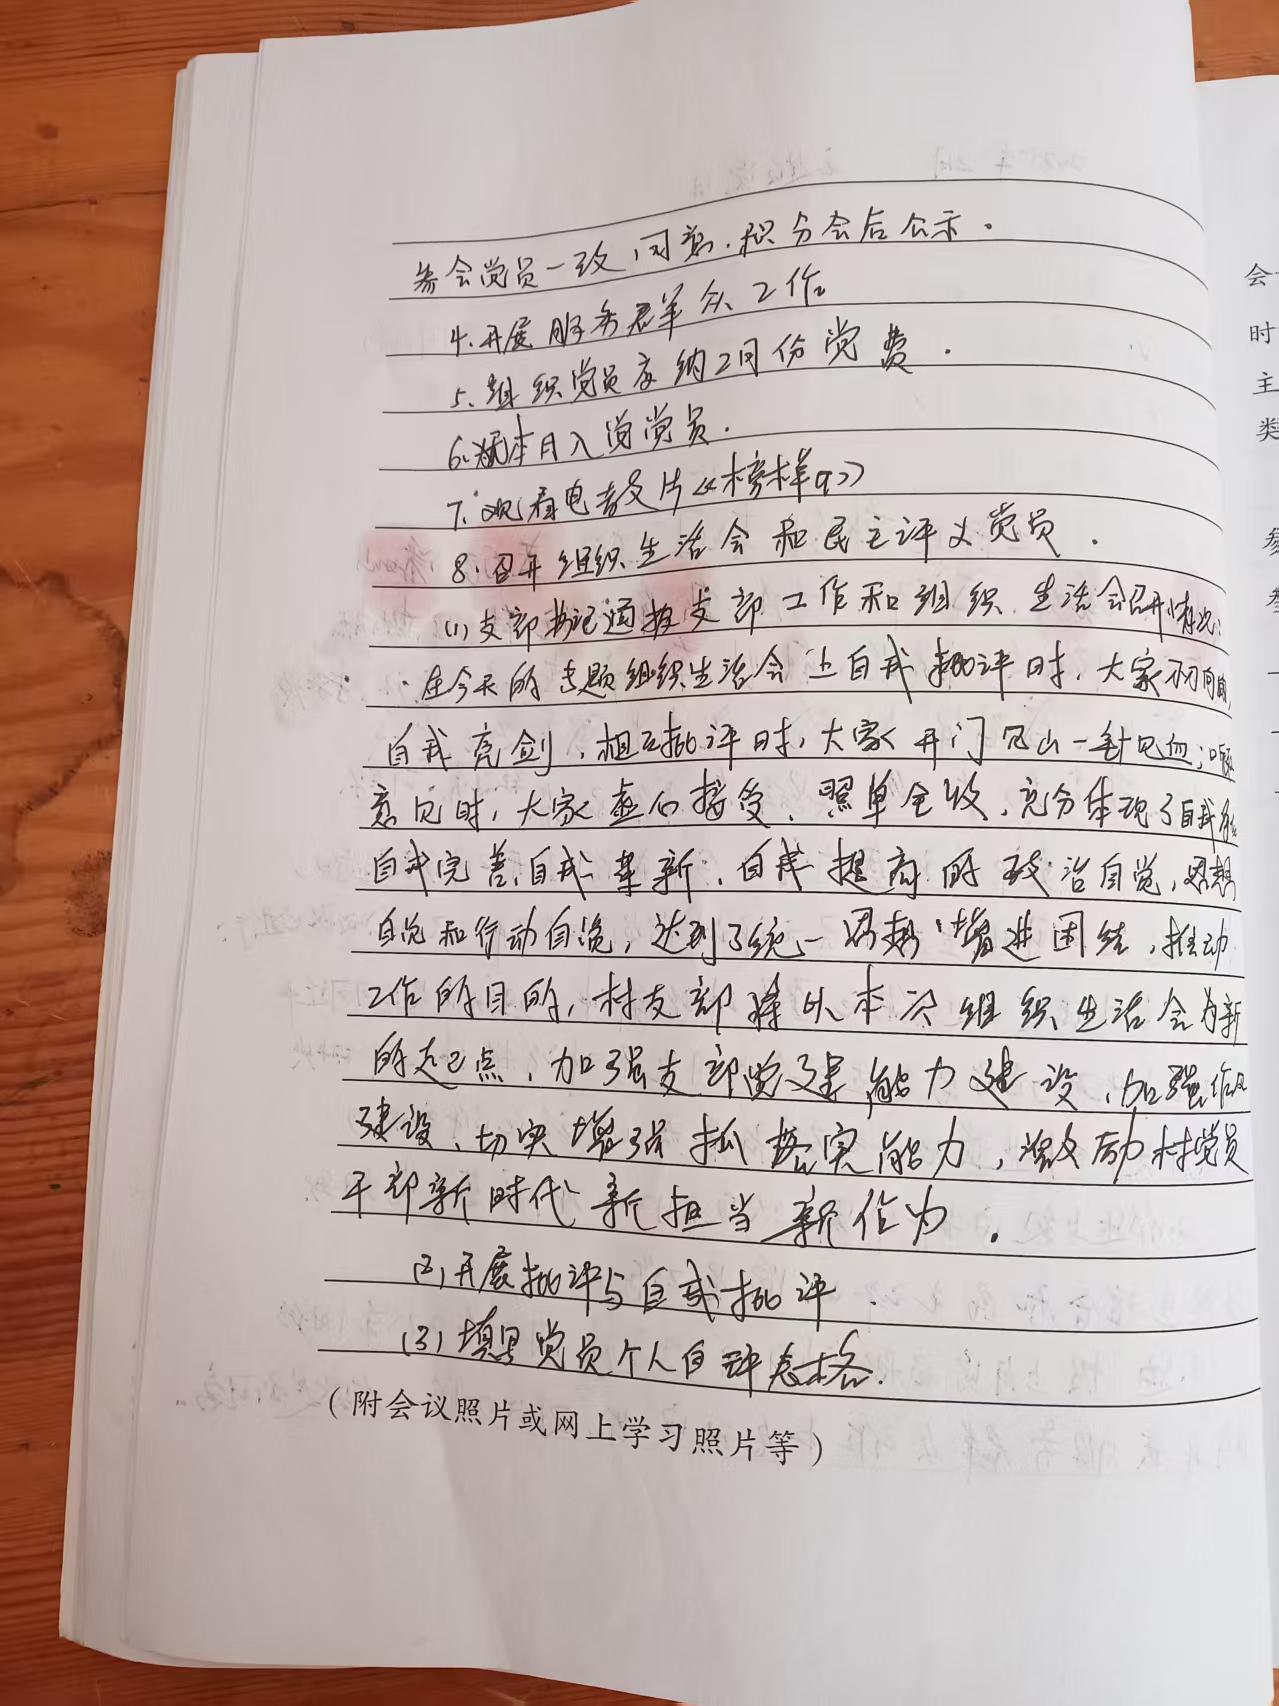 参会党员一致同意.积分会后公示.
4.开展服务群众工作
5.组织党员交纳2月份党费.
6.本月入党党员.
7.观看电教片《榜样9》
8.召开组织生活会和民主评义党员.
(1)支部书记通报支部工作和组织生活会召开情况:
在今天的专题组织生活会上自我批评时,大家
自我亮剑,相互批评时,大家开门见山一针见血;听取
意见时,大家虚心接受、照单全收,充分体现了自我
自我完善、自我革新、自我提高的政治自觉,思想
自觉和行动自觉,达到了统一思想、增进团结,推动
工作的目的,村支部将以本次组织生活会为新
的起点,加强支部党建能力建设、加强作风
建设、切实增强抓落实能力,激励村党员
干部新时代新担当新作为.
(2)开展批评与自我批评.
(3)填写党员个人自评表格.
(附会议照片或网上学习照片等)
会
时
主
类